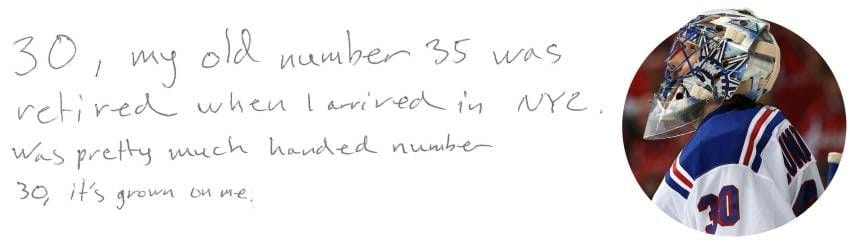 30, my old number 35 was
retired when I arrived in NYC.
Was pretty much handed number
30, it's grown on me.
30